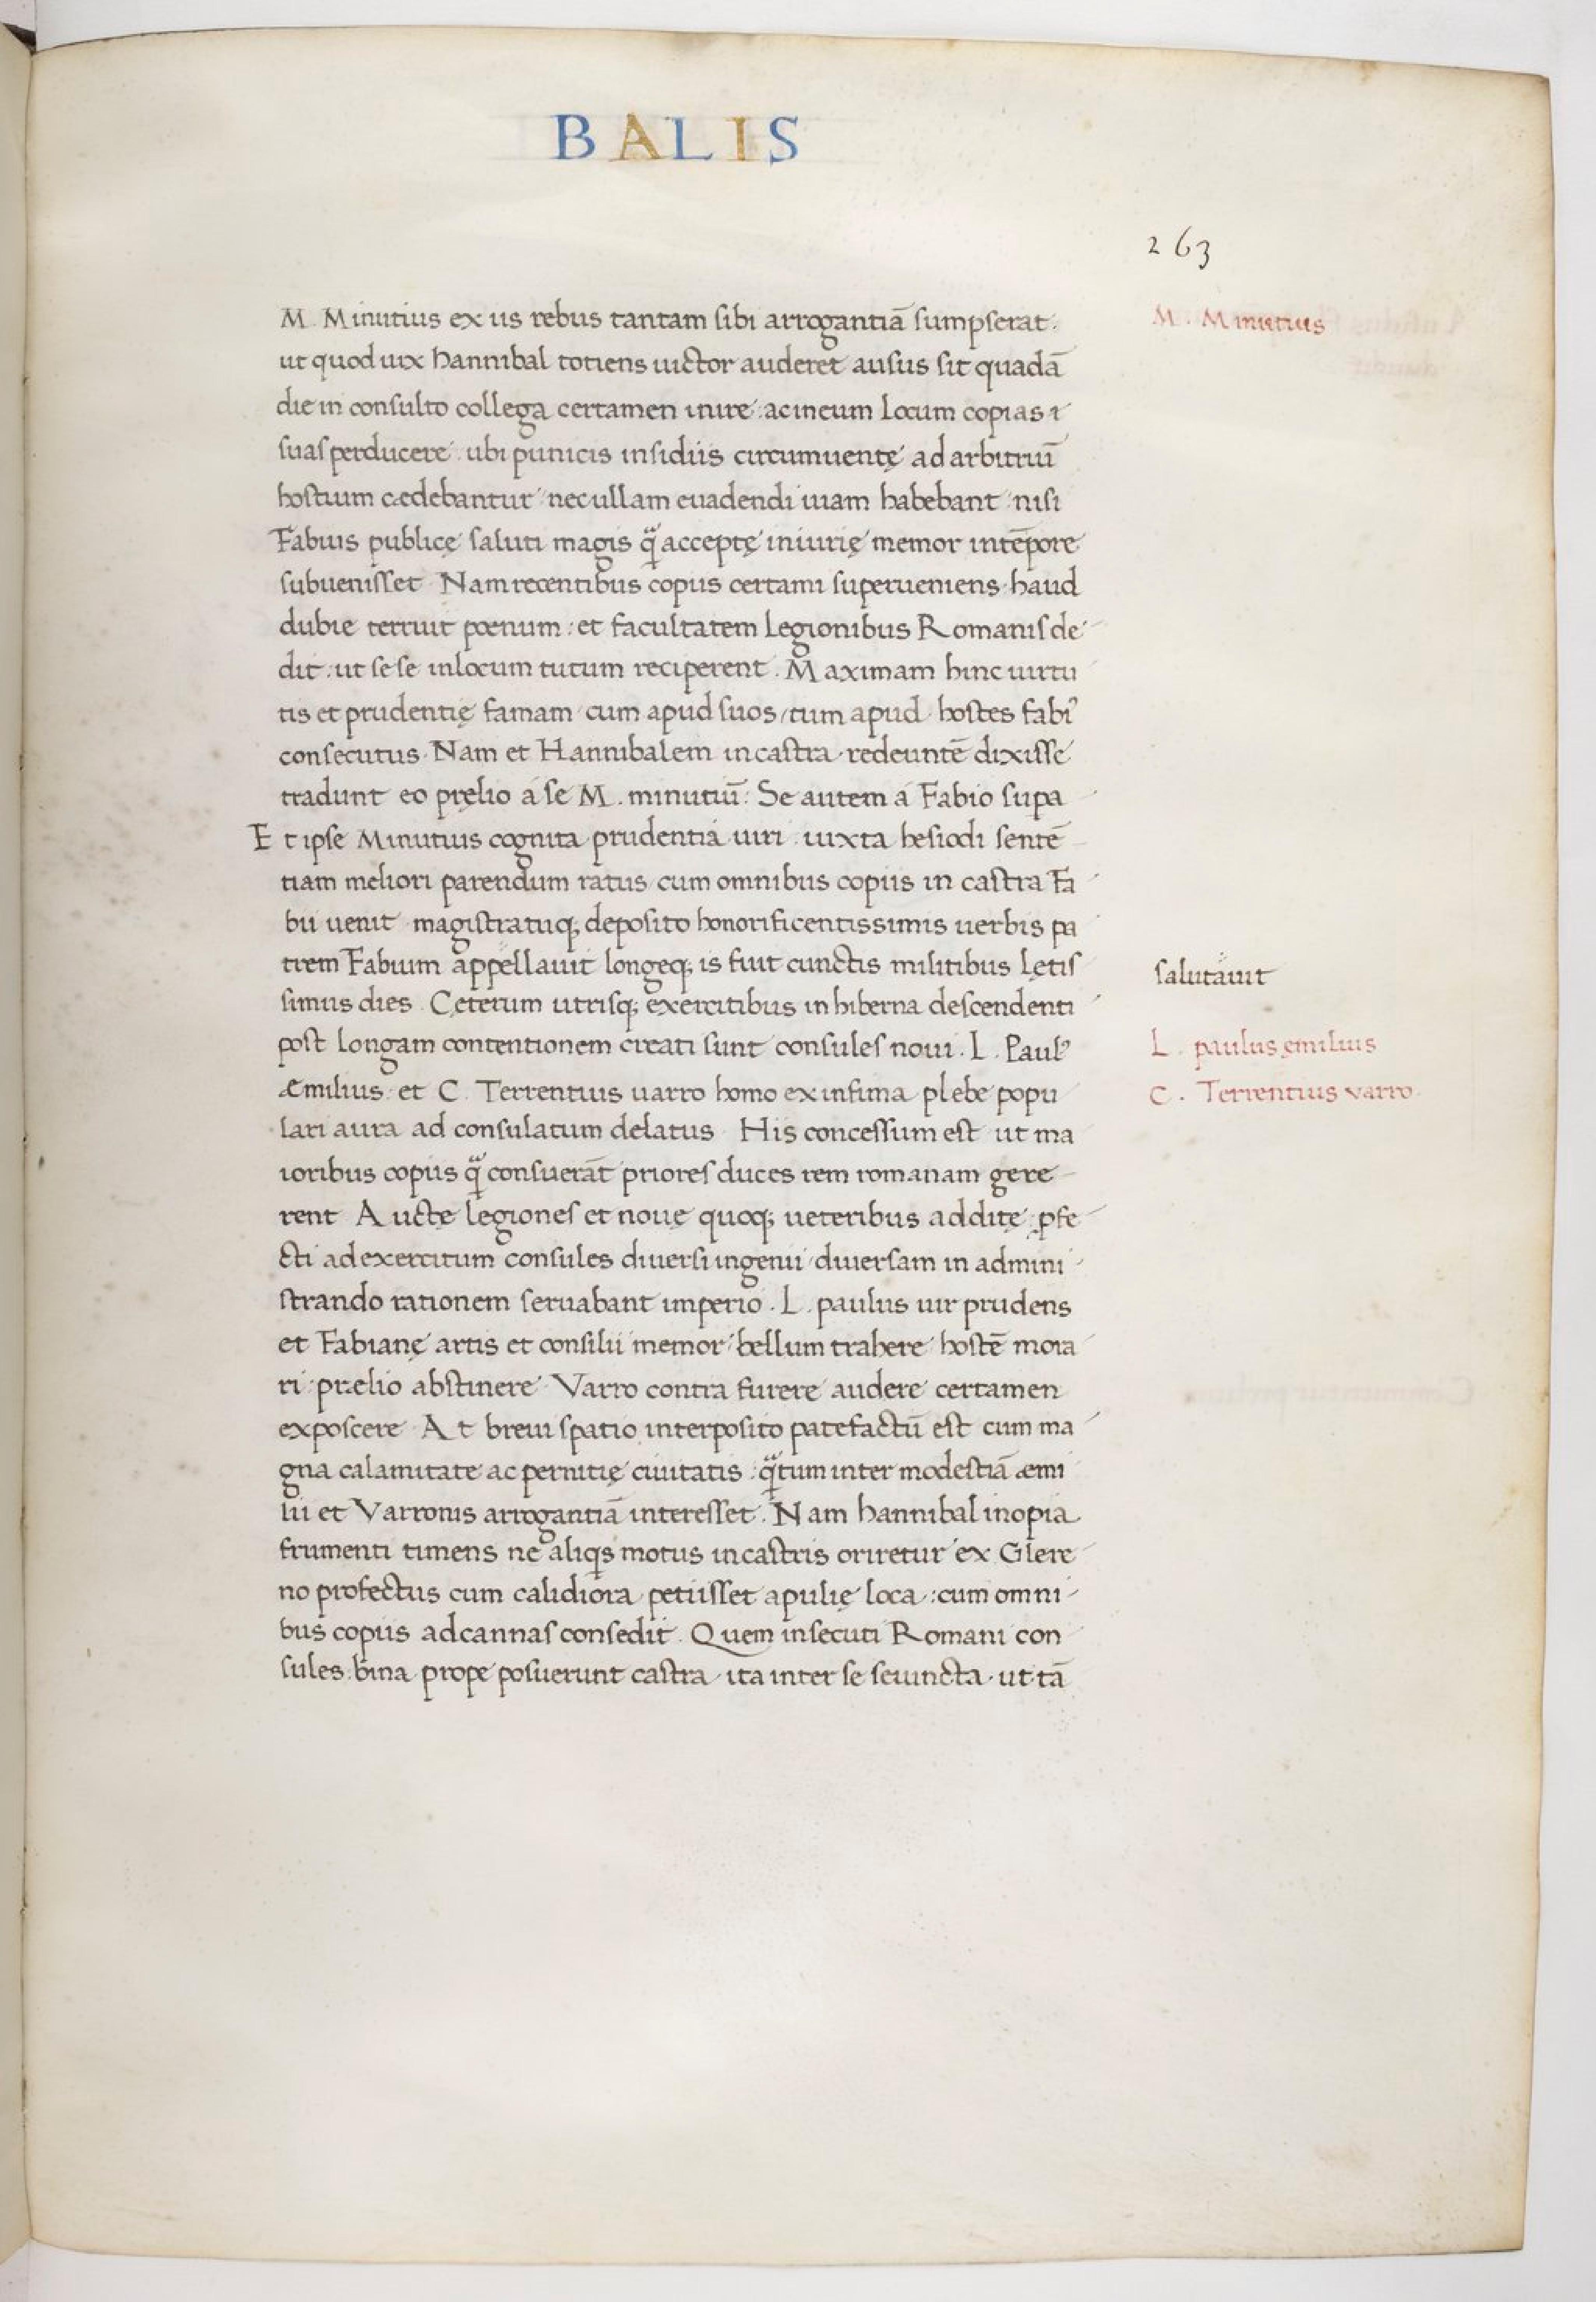 BALIS
263
M. Minutius ex iis rebus tantam sibi arrogantiā sumpserat:
M. Minutius
ut quod uix hannibal totiens uictor auderet ausus sit quadā
die in consulto collega certamen inire: ac in eum locum copias
suas perducere: ubi punicis insidiis circumuentę ad arbitriū
hostium cædebantur: nec ullam euadendi uiam habebant: nisi
Fabius publicę saluti magis q̃ acceptę iniurię memor in tēpore
subuenisset. Nam recentibus copiis certami superueniens haud
dubie terruit pœnum: et facultatem legionibus Romanis de-
dit: ut sese in locum tutum reciperent. Maximam hinc uirtu-
tis et prudentię famam cum apud suos, tum apud hostes fabi᾿
consecutus. Nam et Hannibalem in castra redeuntē dixisse
tradunt eo pręlio á se M. minutiū: Se autem á Fabio supa-
Et ipse Minutius cognita prudentia uiri: iuxta hesiodi sentē-
tiam meliori parendum ratus cum omnibus copiis in castra Fa-
bii uenit magistratuq; deposito honorificentissimis uerbis pa
trem Fabium appellauit longeq; is fuit cunctis militibus lętis
salutauit
simus dies. Cęterum utrisq; exercitibus in hiberna descendenti-
post longam contentionem creati sunt consules noui. L. Paul᾿
L. paulus ęmilius
Æmilius: et C. Terrentius uarro homo ex infima plebe popu
C. Terrentius varro.
lari aura ad consulatum delatus. His concessum est ut ma
ioribus copiis q̃ consuerāt priores duces rem romanam gere-
rent. Auctę legiones et nouę quoq; ueteribus additę: pfe-
cti ad exercitum consules diuersi ingenii diuersam in admini-
strando rationem seruabant imperio. L. paulus uir prudens
et Fabianę artis et consilii memor bellum trahere hostē mora-
ri: prælio abstinere. Varro contra furere audere certamen
exposcere. At breui spatio interposito patefactū est cum ma-
gna calamitate ac pernitię ciuitatis: q̃tum inter modestiā æmi
lii et Varronis arrogantiā interesset. Nam hannibal inopia
frumenti timens ne aliqs motus in castris oriretur ex Glere-
no profectus cum calidiora petiisset apulię loca: cum omni-
bus copiis ad cannas consedit. Quem insecuti Romani con-
sules bina prope posuerunt castra ita inter se seiuncta: ut tā